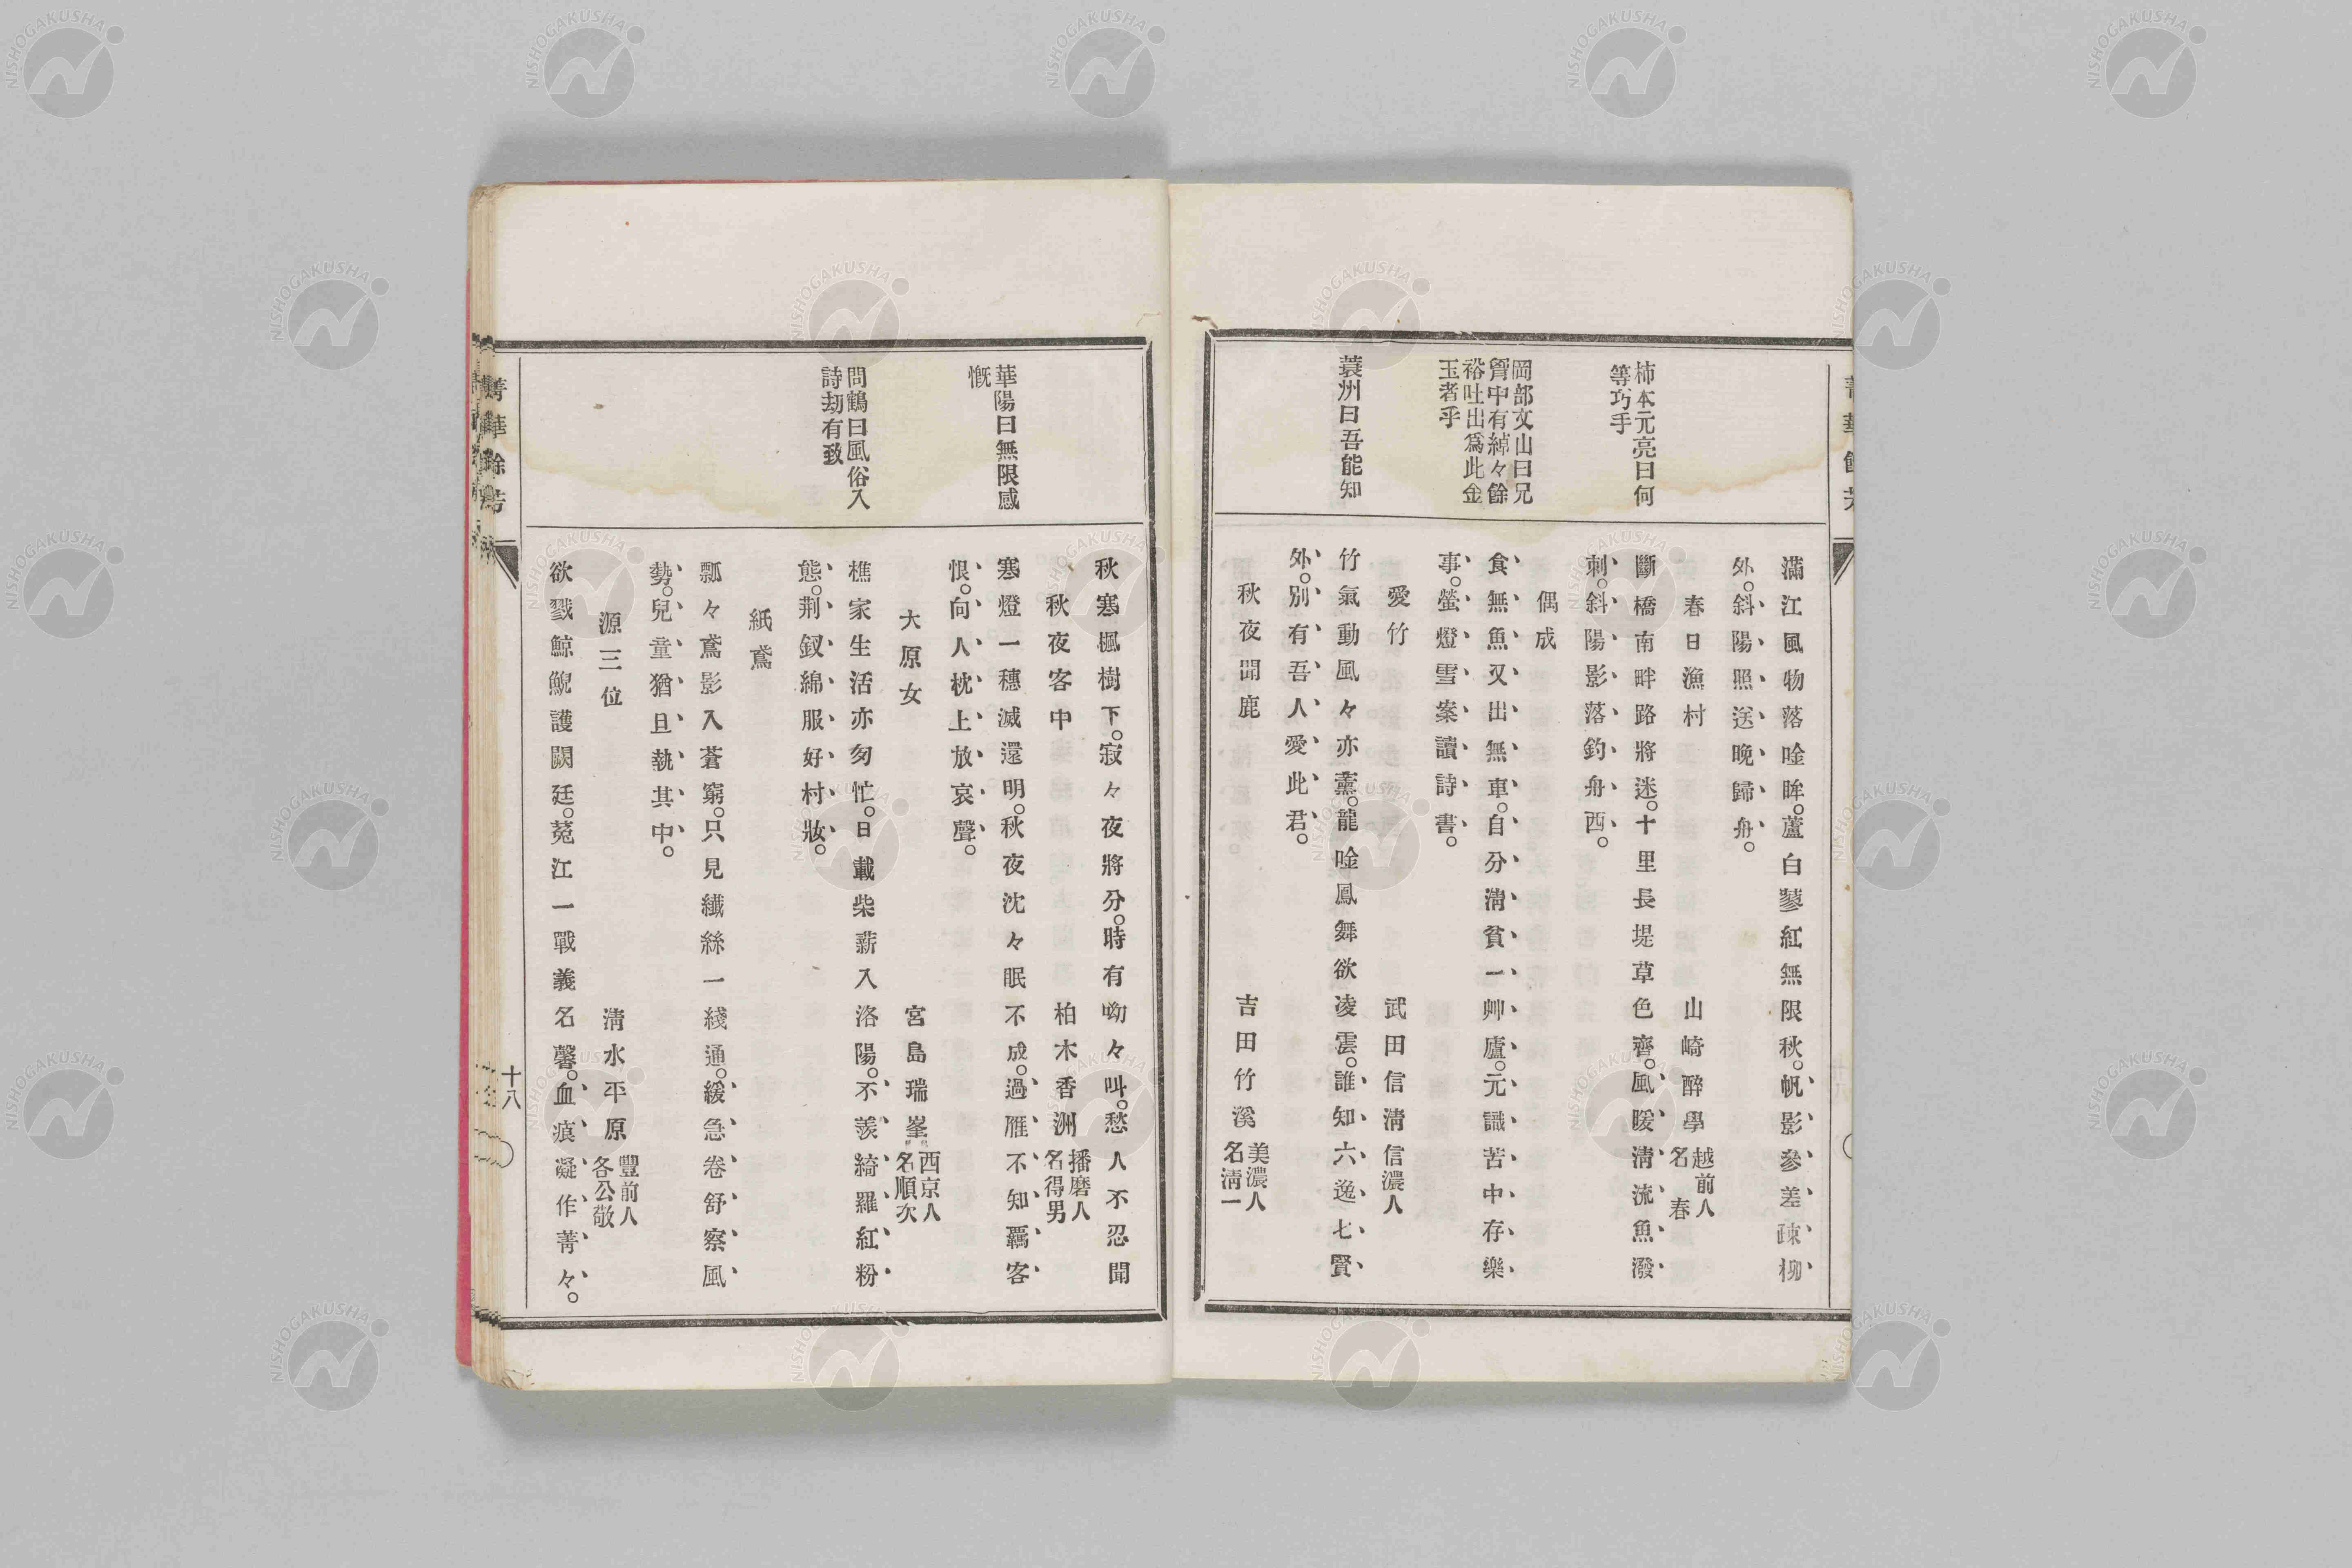 柿本元亮曰何
等巧手
岡部文山曰兄
胷中有綽々餘
裕吐出爲此金
玉者乎
蓑洲曰吾能知
滿江風物落唫眸。蘆白蓼紅無限秋。帆影參差疎柳
外。斜陽照送晚歸舟。
春日漁村 山崎醉學 越前人 名春
斷橋南畔路將迷。十里長堤草色齊。風暖淸流魚潑
刺。斜陽影落釣舟西。
偶成
食無魚又出無車。自分淸貧一艸廬。元識苦中存樂
事。螢燈雪案讀詩書。
愛竹 武田信淸 信濃人
竹氣動風々亦薰。龍唫鳳舞欲凌雲。誰知六逸七賢
外。別有吾人愛此君。
秋夜聞鹿 吉田竹溪 美濃人 名淸一
華陽曰無限感
慨
問鶴曰風俗入
詩刧有致
秋寒楓樹下。寂々夜將分。時有呦々叫。愁人不忍聞
。秋夜客中 柏木香洲 播磨人 名得男
寒燈一穗滅還明。秋夜沈々眠不成。過雁不知羈客
恨。向人枕上放哀聲。
大原女 宮島瑞峯 西京人 名順次
樵家生活亦匆忙。日載柴薪入洛陽。不羨綺羅紅粉
態。荆釵綿服好村妝。
紙鳶
瓢々鳶影入蒼窮。只見纎絲一綫通。緩急卷舒察風
勢。兒童猶且執其中。
源三位 淸水平原 豐前人 各公敬
欲戮鯨鯢護闕廷。菟江一戰義名馨。血痕凝作菁々。
菁華餘芳
十八
NISHOGAKUSHA